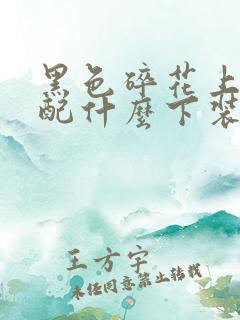 黑色碎花上
配什麼下裝
王方宇
未经同意禁止转载